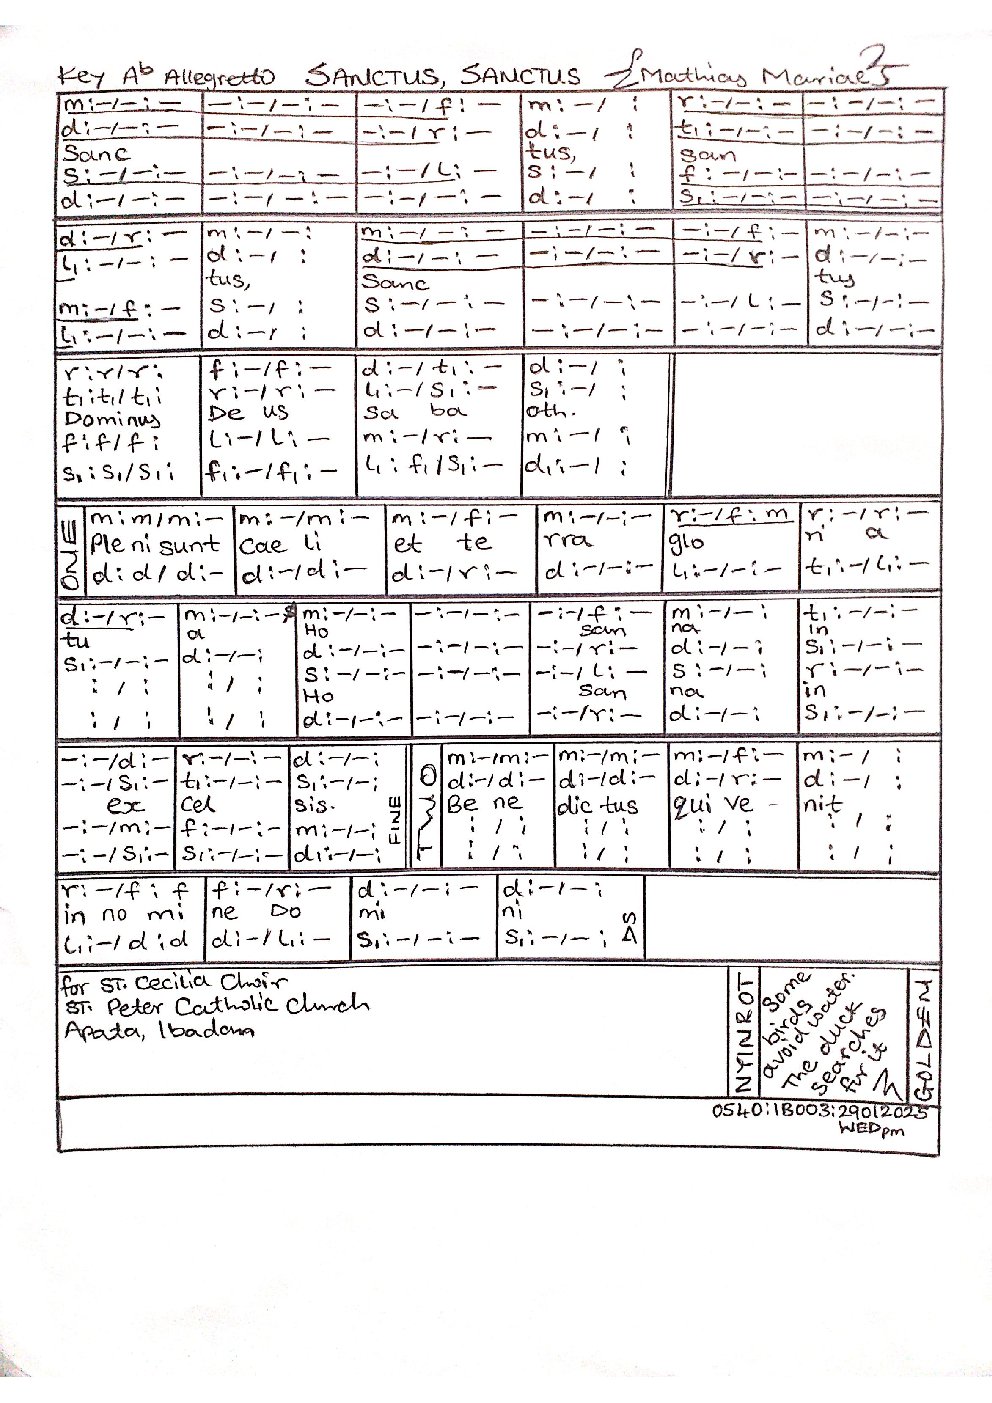 Key Ab Allegretto SANCTUS, SANCTUS Mathias Mariae 25
m:-/-:- | -:-/-:- | -:-/f:- | m:-/ : | r:-/-:- | -:-/-:-
d:-/-:- | -:-/-:- | -:-/r:- | d:-/ : | t₁:-/-:- | -:-/-:-
Sanc tus, san
s:-/-:- | -:-/-:- | -:-/l:- | s:-/ : | f:-/-:- | -:-/-:-
d:-/-:- | -:-/-:- | -:-/-:- | d:-/ : | s₁:-/-:- | -:-/-:-
d:-/r:- | m:-/-: | m:-/-:- | -:-/-:- | -:-/f:- | m:-/-:-
l₁:-/-:- | d:-/ : | d:-/-:- | -:-/-:- | -:-/r:- | d:-/-:-
tus, Sanc tus
m:-/f:- | s:-/ : | s:-/-:- | -:-/-:- | -:-/l:- | s:-/-:-
l₁:-/-:- | d:-/ : | d:-/-:- | -:-/-:- | -:-/-:- | d:-/-:-
r:r/r: | f:-/f:- | d:-/t₁:- | d:-/ :
t₁:t₁/t₁: | r:-/r:- | l₁:-/s₁:- | s₁:-/ :
Dominus De us Sa ba oth.
f:f/f: | l:-/l:- | m:-/r:- | m:-/ :
s₁:s₁/s₁: | f₁:-/f₁:- | l₁:f₁/s₁:- | d₁:-/ :
ONE
m:m/m:- | m:-/m:- | m:-/f:- | m:-/-:- | r:-/f:m | r:-/r:-
Pleni sunt Cae li et te rra glo ri a
d:d/d:- | d:-/d:- | d:-/r:- | d:-/-:- | l₁:-/-:- | t₁:-/l₁:-
d:-/r:- | m:-/-:-$ | m:-/-:- | -:-/-:- | -:-/f:- | m:-/-: | t₁:-/-:-
tu a Ho san na in
s₁:-/-:- | d:-/-: | d:-/-:- | -:-/-:- | -:-/r:- | d:-/-: | s₁:-/-:-
: / : | : / : | s:-/-:- | -:-/-:- | -:-/l:- | s:-/-: | r:-/-:-
Ho San na in
: / : | : / : | d:-/-:- | -:-/-:- | -:-/r:- | d:-/-: | s₁:-/-:-
-:-/d:- | r:-/-:- | d:-/-: | m:-/m:- | m:-/m:- | m:-/f:- | m:-/ :
-:-/s₁:- | t₁:-/-:- | s₁:-/-: | d:-/d:- | d:-/d:- | d:-/r:- | d:-/ :
ex cel sis. FINE TWO Be ne dic tus qui ve - nit
-:-/m:- | f:-/-:- | m:-/-: | : / : | : / : | : / : | : / :
-:-/s₁:- | s₁:-/-:- | d₁:-/-: | : / : | : / : | : / : | : / :
r:-/f:f | f:-/r:- | d:-/-:- | d:-/-:
in no mi ne Do mi ni DS
l₁:-/d:d | d:-/l₁:- | s₁:-/-:- | s₁:-/-:
for ST. Cecilia Choir
ST. Peter Catholic Church
Apata, Ibadan
NYINROT
Some
birds
avoid water.
The duck
searches
for it
GOLDEN
0540:1B003:29012025
WED pm